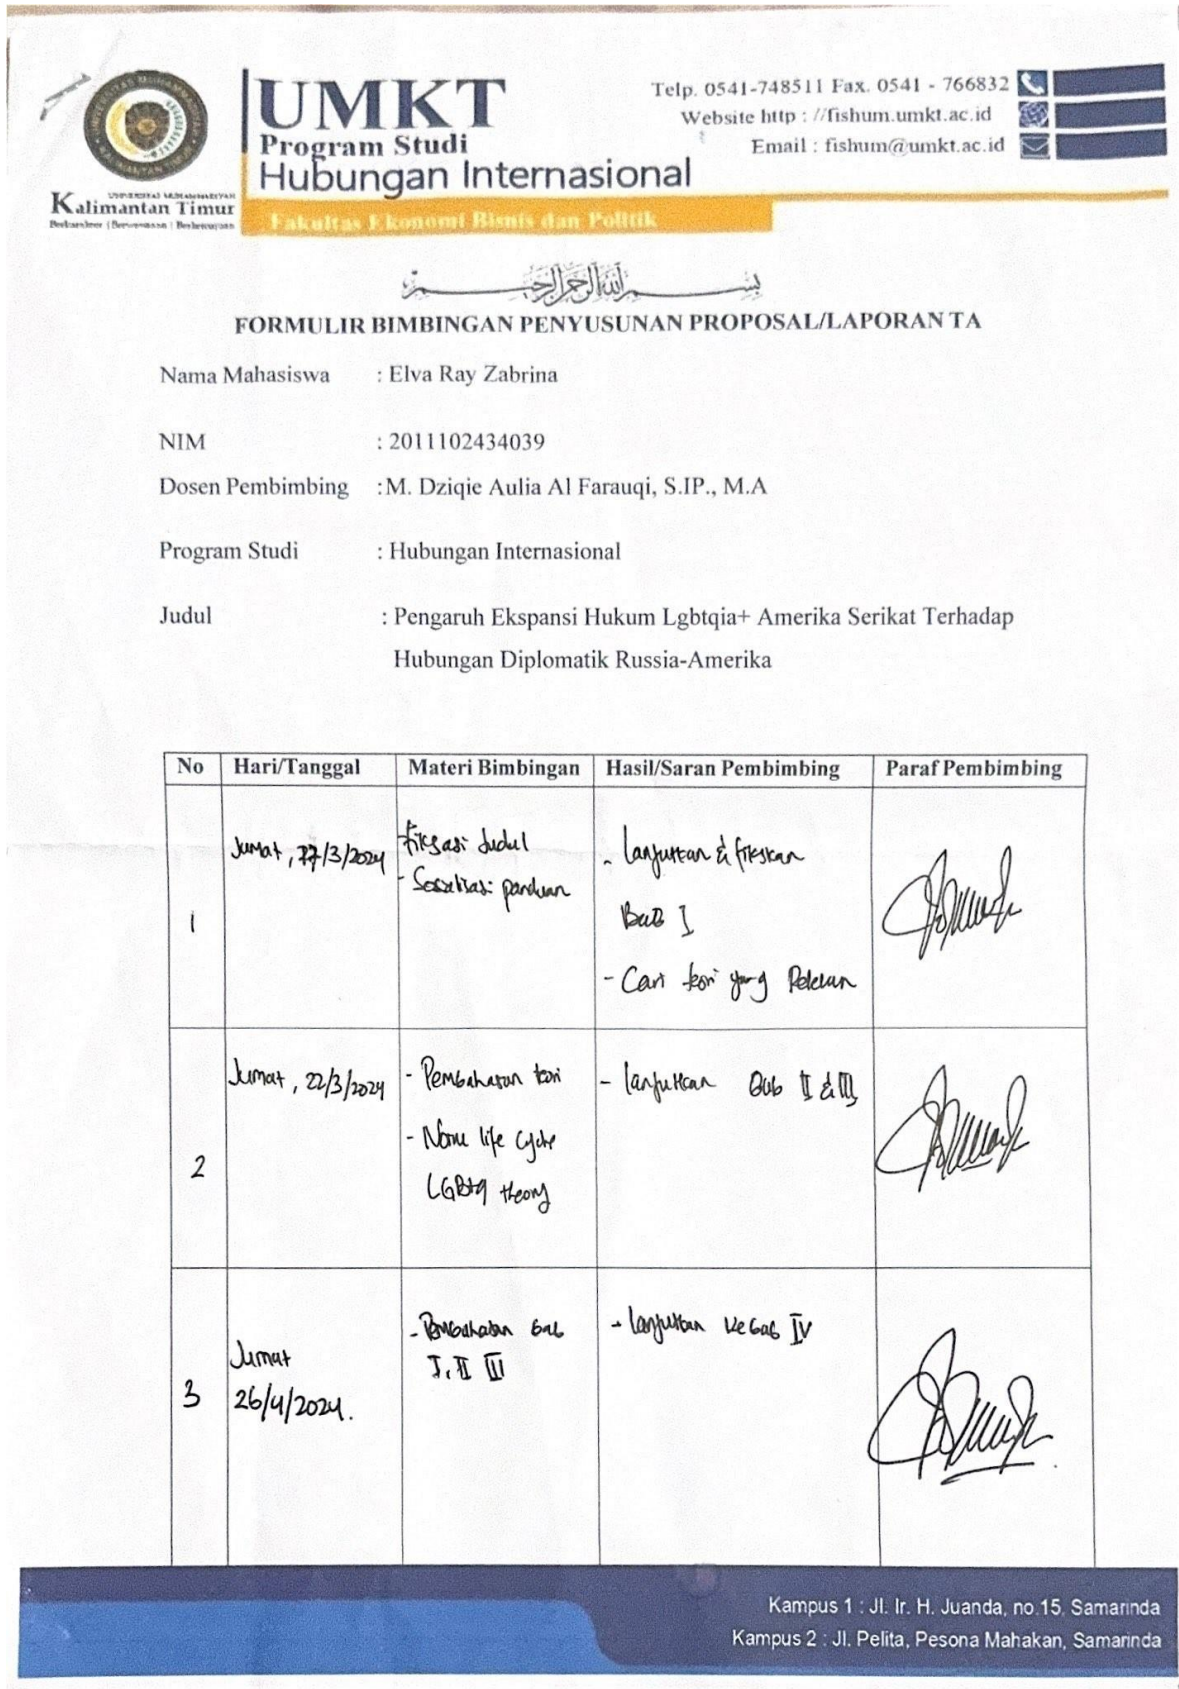 UNIVERSITAS MUHAMMADIYAH
KALIMANTAN TIMUR
UNIVERSITAS MUHAMMADIYAH
Kalimantan Timur
Berkarakter | Berwawasan | Berkemajuan
UMKT
Program Studi
Hubungan Internasional
Fakultas Ekonomi Bisnis dan Politik
Telp. 0541-748511 Fax. 0541 - 766832
Website http : //fishum.umkt.ac.id
Email : fishum@umkt.ac.id
بسم الله الرحمن الرحيم
FORMULIR BIMBINGAN PENYUSUNAN PROPOSAL/LAPORAN TA
Nama Mahasiswa : Elva Ray Zabrina
NIM : 2011102434039
Dosen Pembimbing : M. Dziqie Aulia Al Farauqi, S.IP., M.A
Program Studi : Hubungan Internasional
Judul : Pengaruh Ekspansi Hukum Lgbtqia+ Amerika Serikat Terhadap
Hubungan Diplomatik Russia-Amerika
No Hari/Tanggal Materi Bimbingan Hasil/Saran Pembimbing Paraf Pembimbing
1
Jumat, /3/2024
Fiksasi Judul
- Sosialisasi panduan
- lanjutkan & fikskan
Bab I
- Cari teori yang Relevan
2
Jumat, 22/3/2024
- Pembahasan teori
- Norm life cycle
LGBtq theory
- lanjutkan Bab II & III
3
Jumat
26/4/2024.
- Pembahasan bab
I, II III
- lanjutkan ke bab IV
Kampus 1 : Jl. Ir. H. Juanda, no.15, Samarinda
Kampus 2 : Jl. Pelita, Pesona Mahakan, Samarinda